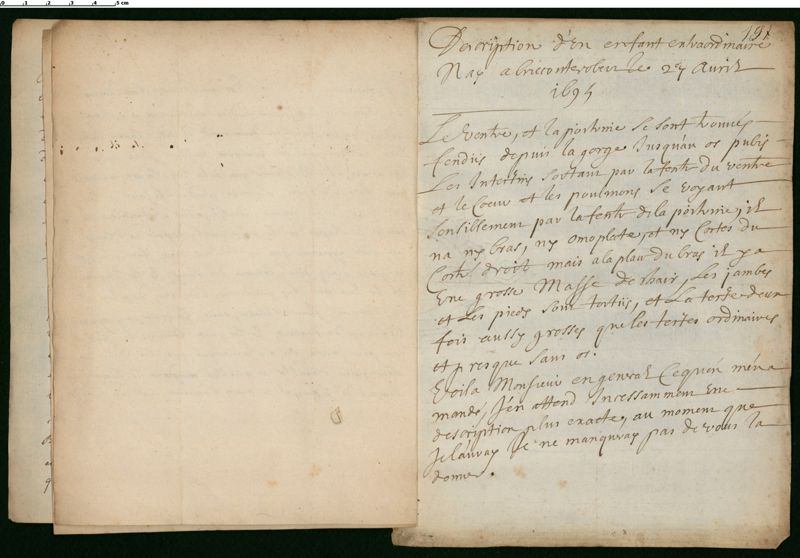 0 1 2 3 4 5 cm
191
Description d'En enfant extraordinaire
Nay a brieconterobert le 27 Avril
1695
Le Ventre, et la poitrine se sont trouvés
fendües depuis la gorge Jusquau os pubis
Les Intestins sortant par la fente du ventre
et le Coeur et les poulmons se voyant
sensiblement par la fente de la poitrine, il
na ny bras, ny omoplate, et ny Costes du
Costé droit mais a la place du bras il y a
Une grosse Masse de chair, Les jambes
et Les pieds sont tortüs, et La teste deux
fois aussy grosses que les testes ordinaires
et presque sans os.
Voila Monsieur en general Cequón mén a
mandé, J'en attend Incessamment Une
description plus exacte, au moment que
Je lauray Je ne manqueray pas de vous la
donner.